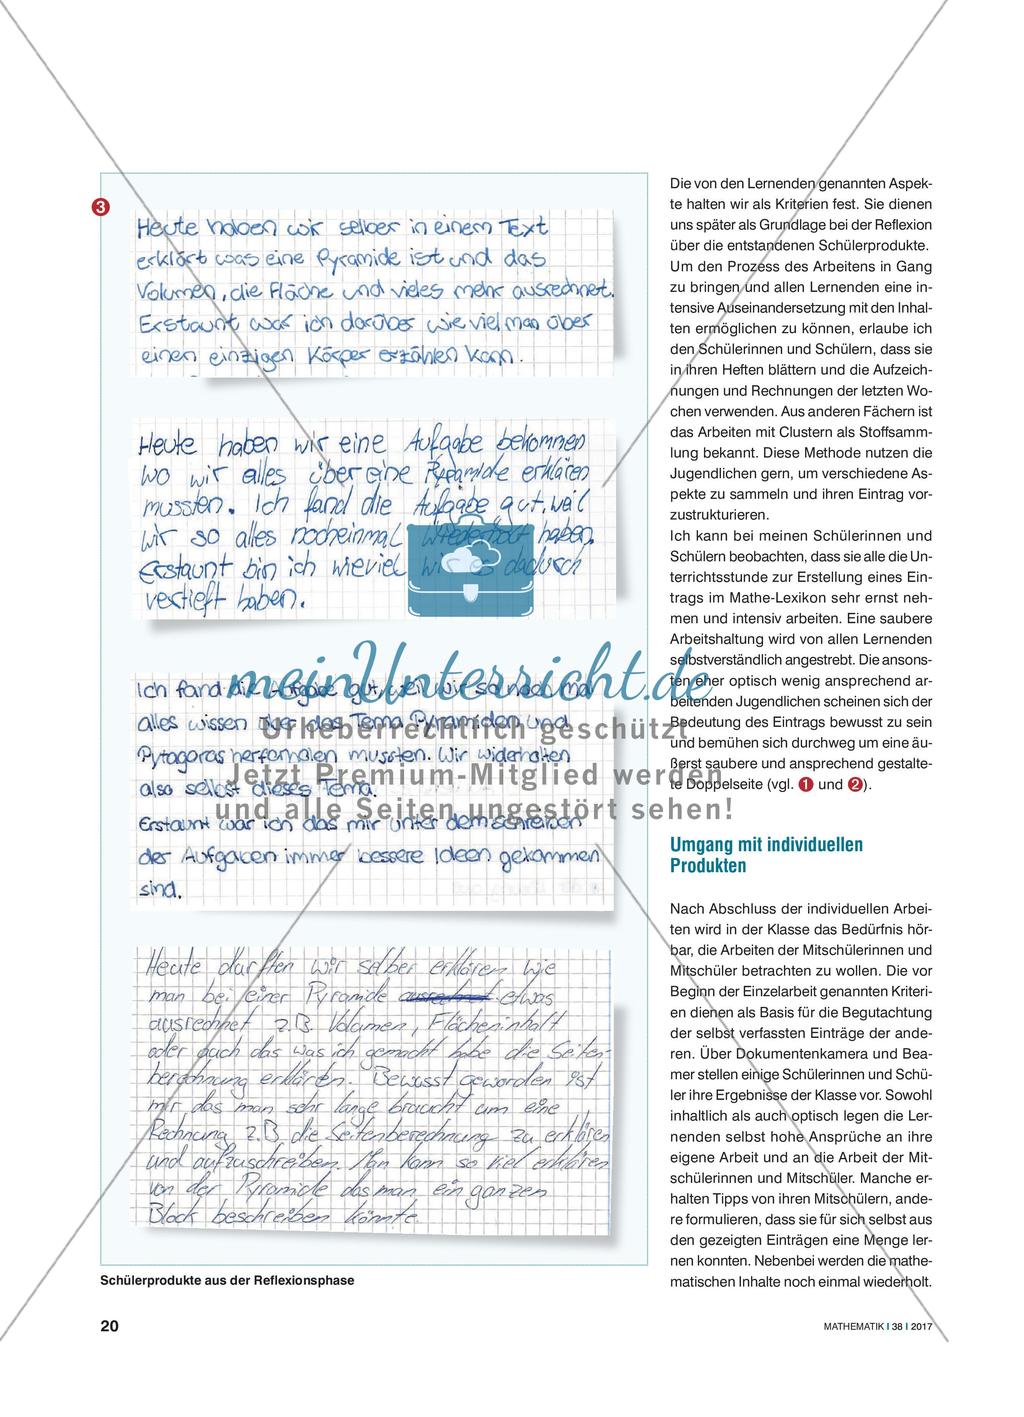 3
Heute haben wir selber in einem Text
erklärt was eine Pyramide ist und das
Volumen, die Fläche und vieles mehr ausrechnet.
Erstaunt war ich darüber wie viel man über
einen einzigen Körper erzählen kann.
Heute haben wir eine Aufgabe bekommen
wo wir alles über eine Pyramide erklären
mussten. Ich fand die Aufgabe gut, weil
wir so alles nocheinmal wiederholt haben.
Erstaunt bin ich wieviel wir es dadurch
vertieft haben.
Ich fand die Aufgabe gut, weil wir so noch mal
alles wissen über das Tema Pyramiden und
Pytagoras herforholen mussten. Wir widerholten
also selbst dieses Tema.
Erstaunt war ich das mir unter dem schreiben
der Aufgaben immer bessere Ideen gekommen
sind.
Heute durften wir selber erklären wie
man bei einer Pyramide ausrechnet etwas
ausrechnet z.B. Volumen, Flächeninhalt
oder auch das was ich gemacht habe die Seiten-
berechnung erklärten. Bewusst geworden ist
mir das man sehr lange braucht um eine
Rechnung z.B. die Seitenberechnung zu erklären
und aufzuschreiben. Man kann so viel erklären
von der Pyramide das man ein ganzen
Block beschreiben könnte.
Schülerprodukte aus der Reflexionsphase
Die von den Lernenden genannten Aspek-
te halten wir als Kriterien fest. Sie dienen
uns später als Grundlage bei der Reflexion
über die entstandenen Schülerprodukte.
Um den Prozess des Arbeitens in Gang
zu bringen und allen Lernenden eine in-
tensive Auseinandersetzung mit den Inhal-
ten ermöglichen zu können, erlaube ich
den Schülerinnen und Schülern, dass sie
in ihren Heften blättern und die Aufzeich-
nungen und Rechnungen der letzten Wo-
chen verwenden. Aus anderen Fächern ist
das Arbeiten mit Clustern als Stoffsamm-
lung bekannt. Diese Methode nutzen die
Jugendlichen gern, um verschiedene As-
pekte zu sammeln und ihren Eintrag vor-
zustrukturieren.
Ich kann bei meinen Schülerinnen und
Schülern beobachten, dass sie alle die Un-
terrichtsstunde zur Erstellung eines Ein-
trags im Mathe-Lexikon sehr ernst neh-
men und intensiv arbeiten. Eine saubere
Arbeitshaltung wird von allen Lernenden
selbstverständlich angestrebt. Die ansons-
ten eher optisch wenig ansprechend ar-
beitenden Jugendlichen scheinen sich der
Bedeutung des Eintrags bewusst zu sein
und bemühen sich durchweg um eine äu-
ßerst saubere und ansprechend gestalte-
te Doppelseite (vgl. 1 und 2).
Umgang mit individuellen
Produkten
Nach Abschluss der individuellen Arbei-
ten wird in der Klasse das Bedürfnis hör-
bar, die Arbeiten der Mitschülerinnen und
Mitschüler betrachten zu wollen. Die vor
Beginn der Einzelarbeit genannten Kriteri-
en dienen als Basis für die Begutachtung
der selbst verfassten Einträge der ande-
ren. Über Dokumentenkamera und Bea-
mer stellen einige Schülerinnen und Schü-
ler ihre Ergebnisse der Klasse vor. Sowohl
inhaltlich als auch optisch legen die Ler-
nenden selbst hohe Ansprüche an ihre
eigene Arbeit und an die Arbeit der Mit-
schülerinnen und Mitschüler. Manche er-
halten Tipps von ihren Mitschülern, ande-
re formulieren, dass sie für sich selbst aus
den gezeigten Einträgen eine Menge ler-
nen konnten. Nebenbei werden die mathe-
matischen Inhalte noch einmal wiederholt.
meinUnterricht.de
Urheberrechtlich geschützt
Jetzt Premium-Mitglied werden
und alle Seiten ungestört sehen!
20
MATHEMATIK I 38 I 2017